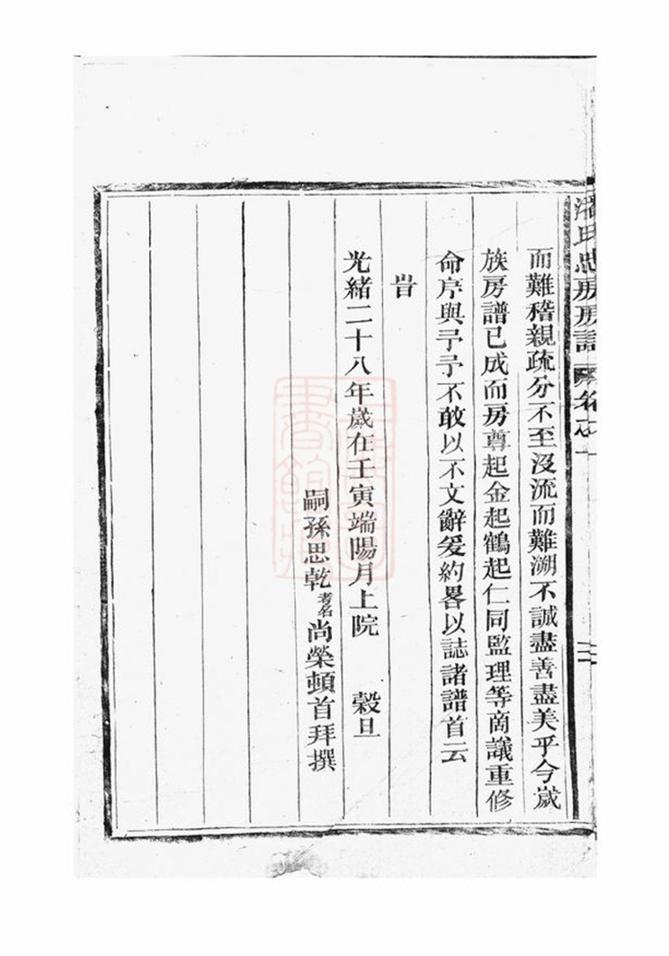 潘氏忠房房譜 卷之一 二
而難稽親疏分不至沒流而難溯不誠盡善盡美乎今歲
族房譜已成而房尊起金起鶴起仁同監理等商議重修
命序與予予不敢以不文辭爰約畧以誌諸譜首云
旹
光緒二十八年歲在壬寅端陽月上院 穀旦
嗣孫思乾考名尚榮頓首拜撰